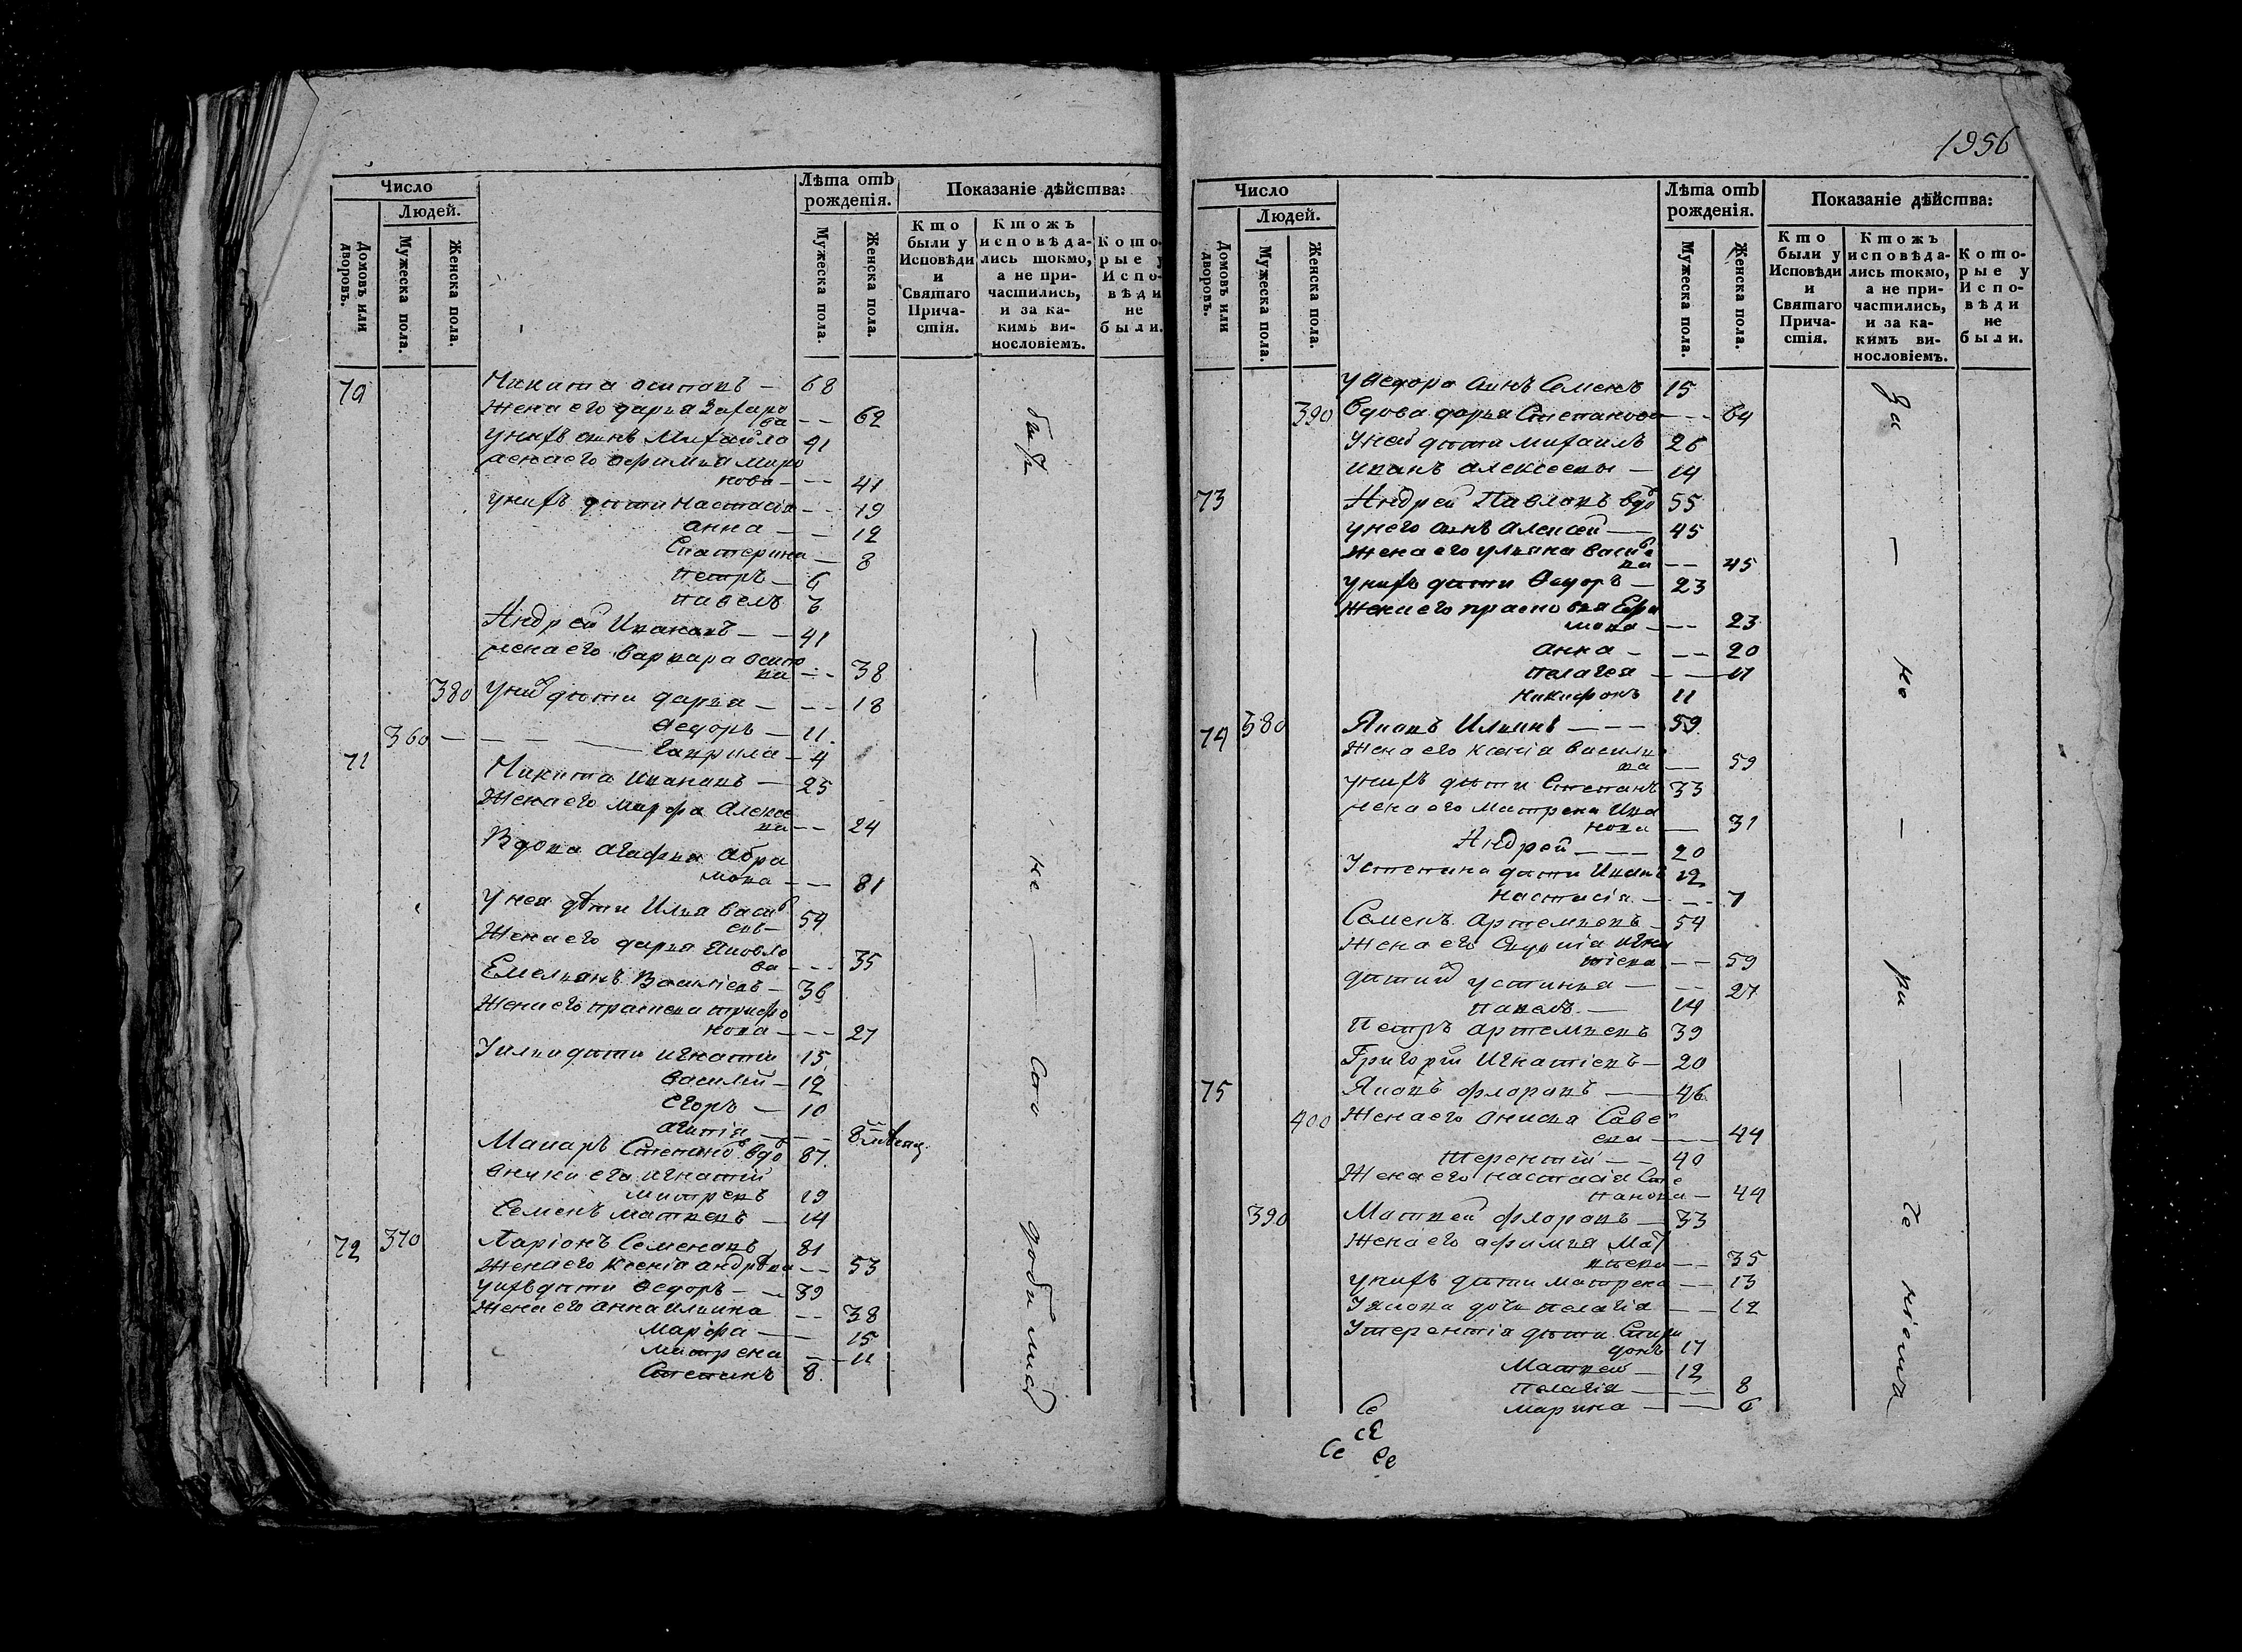 1956
Число
Лѣта отъ рожденія.
Показаніе дѣйства:
Людей.
Домовъ или дворовъ.
Мужеска пола.
Женска пола.
Мужеска пола.
Женска пола.
Кто были у Исповѣди и Святаго Прича-стія.
Ктожъ исповѣда-лись токмо, а не при-частились, и за ка-кимъ ви-нословіемъ.
Кото-рые у Испо-вѣди не были.
70 Никита осиповъ — 68
Жена его дарья Захаро
ва — — 62
у нихъ сынъ Михайло 41
жена его афимья миро
нова — — 41
у нихъ дѣти Настасія — — 19
анна — — 12
Екатерина — 8
петръ — 6
павелъ 3
Андрей Ивановъ — — 41
жена его варвара осипо
ва — — 38
380 у них дѣти дарья — — — 18
Ѳедоръ — 11
360 — — — — гаврила — 4
71 Никита Ивановъ — 25
Жена его марфа Алексе
ва — — 24
Вдова агафья Абра
мова — — 81
у нея дѣти Илья васил
евъ — 54
Жена его дарья Яковле
ва — — 35
Емельянъ Васильевъ — 36
Жена его трифо
нова — — — 27
У ильи дѣти игнатій 15
василій — 12
Егоръ — 10
— 8
Макаръ Степано вдо 87
внуки его игнатій
19
Семенъ матвеевъ — 14
72 370 Ларіонъ Семеновъ 81
Жена его ксенія андрѣва — — 53
у ихъ дѣти Ѳедоръ — — 39
Жена его анна ильина — — 38
Марфа — — 15
Матрена — — 11
Степанъ 8
не
Число
Лѣта отъ рожденія.
Показаніе дѣйства:
Людей.
Домовъ или дворовъ.
Мужеска пола.
Женска пола.
Мужеска пола.
Женска пола.
Кто были у Исповѣди и Святаго Прича-стія.
Ктожъ исповѣда-лись токмо, а не при-частились, и за ка-кимъ ви-нословіемъ.
Кото-рые у Испо-вѣди не были.
у Ѳедора сынъ Семенъ 15
390 Вдова дарья Степанова — — 64
У ней дѣти михаилъ 26
иванъ алексеевы — 14
73 Андрей Павловъ вдо 55
у него сынъ алексей — 45
Жена его ульяна васил
ва — — 45
у нихъ дѣти Ѳедоръ — 23
Жена его прасковья Ефи
мова — — 23
анна — — — 20
пелагея — — 17
никифоръ 11
74 380 Яковъ Ильинъ — — — 59
Жена его ксенія василье
ва — 59
у нихъ дѣти Степанъ 33
жена его Матрена Ива
нова — 31
Андрей — — — 20
У степана дѣти Иванъ 12
настасія — — — 7
Семенъ Артемьевъ — 54
Жена его игна
тіева — — 59
дѣти устинья — — — 27
павелъ — 14
Петръ артемьевъ 39
Григорій Игнатіевъ — 20
75 Яковъ флоровъ — 46
400 Жена его анисья Саве
ева — — 44
терентій — — 40
Жена его настасія Сте
панова — 44
390 Матвей флоровъ — 33
Жена его афимья Мат
вѣева — — 35
у нихъ дѣти матрена — — 13
У якова дочь пелагія — — 12
У терентія дѣти Спири
донъ 17
Матвей — 12
пелагія — — — 8
марина — — 6
За — не — ра — че ніемъ
Се
сЕ
Се
Се